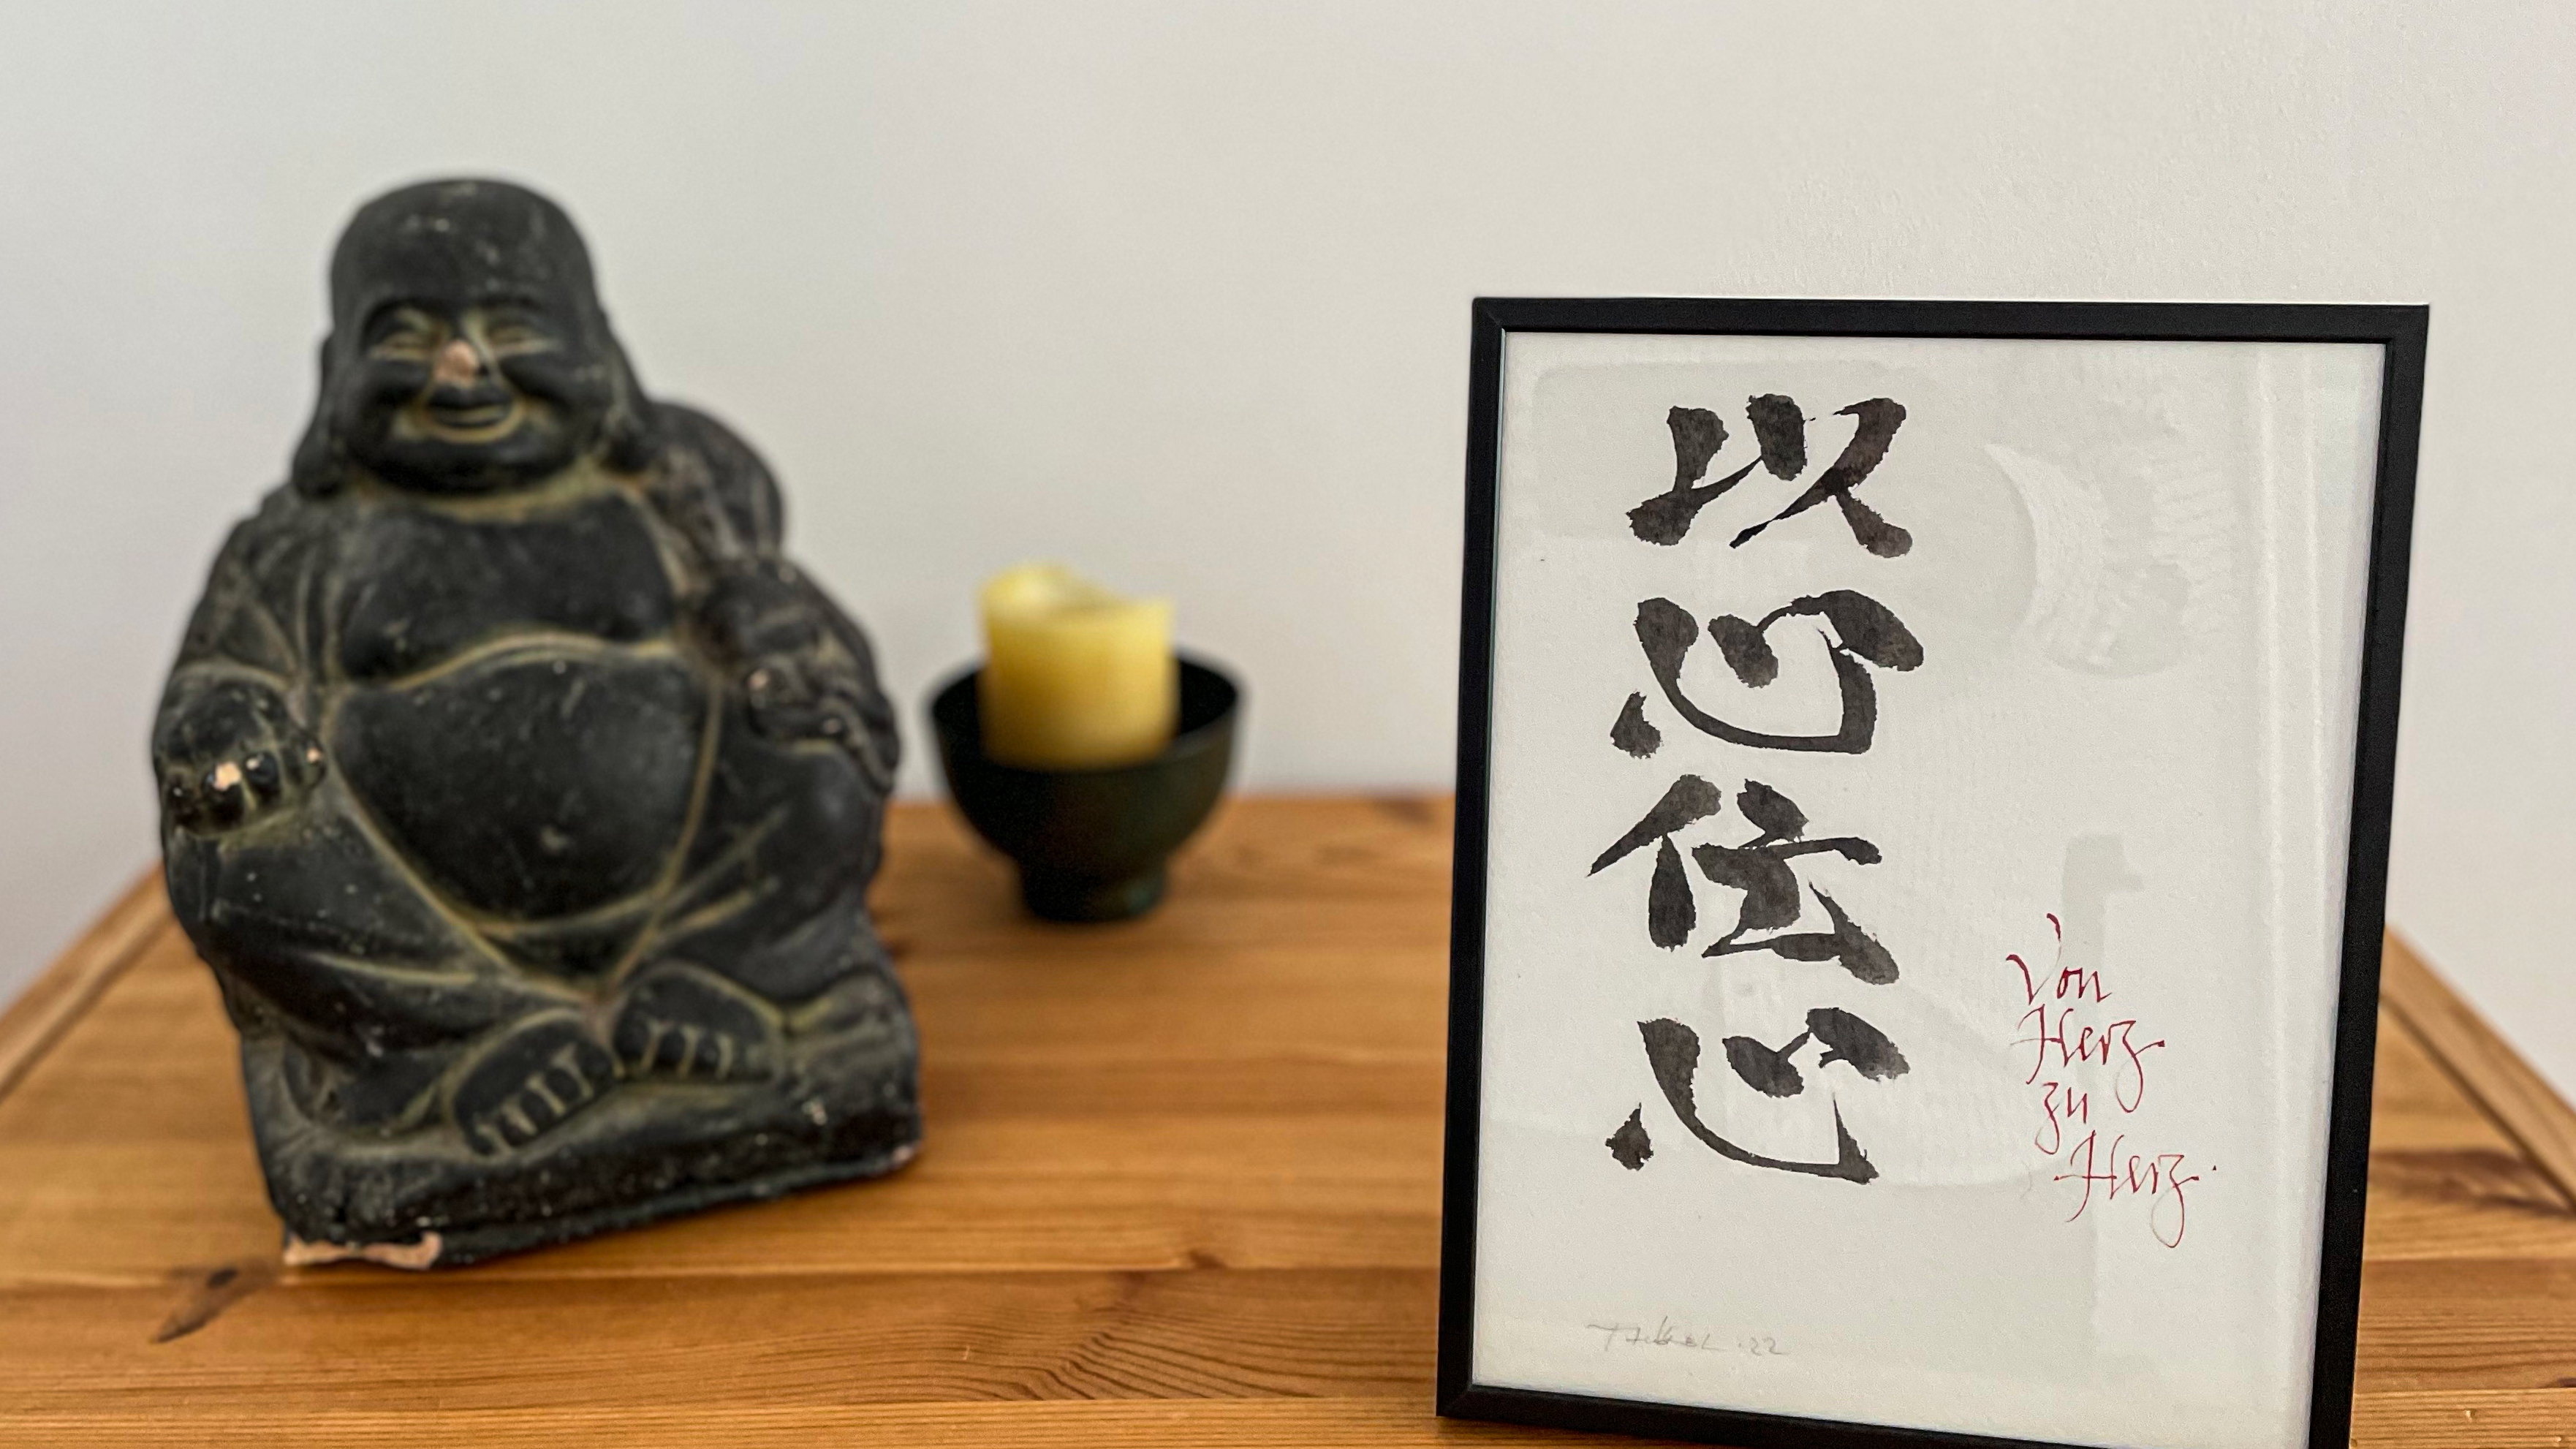 以心伝心
Von
Herz
zu
Herz.